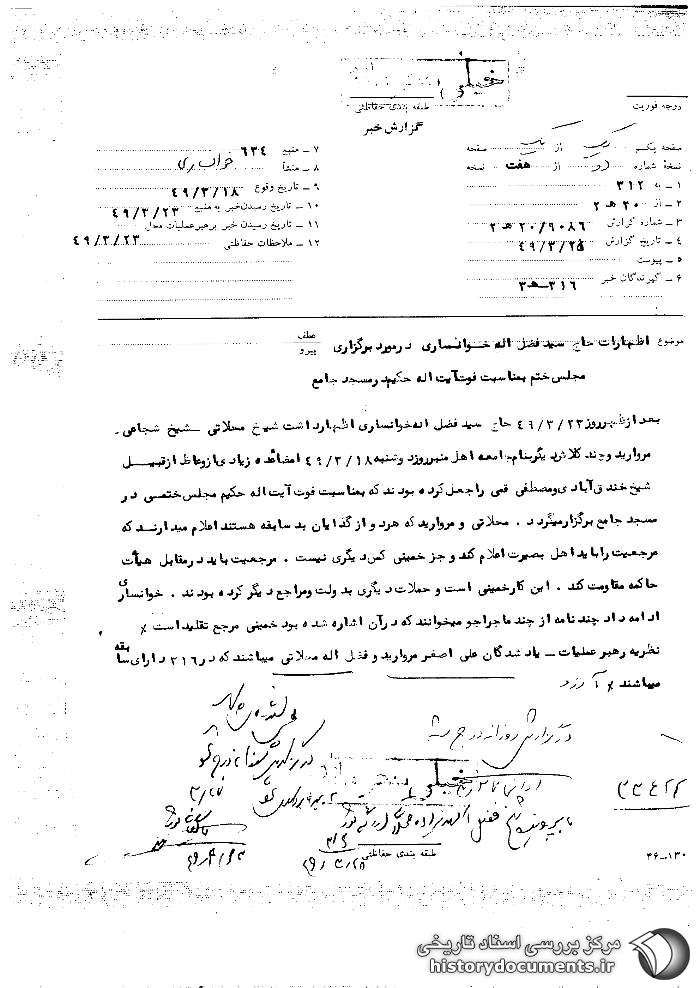 خیلی
طبقه بندی حفاظتی
درجه فوریت
گزارش خبر
صفحه یکم یک از یک صفحه
نسخهٔ شماره دو از هفت نسخه
۱ ـ به ۳۱۲
۲ ـ از ۲۰ هـ ۲
۳ ـ شماره گزارش ۲۰/۹۰۸۶ هـ ۲
۴ ـ تاریخ گزارش ۴۹/۳/۲۵
۵ ـ پیوست
۶ ـ گیرندگان خبر ۳۱۶ـهـ۳
۷ ـ منبع ۶۳۴
۸ ـ منشأ خوانساری
۹ ـ تاریخ وقوع ۴۹/۳/۱۸
۱۰ ـ تاریخ رسیدن خبر به منبع ۴۹/۳/۲۳
۱۱ ـ تاریخ رسیدن خبر برهبر عملیات محل
۱۲ ـ ملاحظات حفاظتی ۴۹/۳/۲۳
عطف
پیرو
موضوع اظهارات حاج سید فضل اله خوانساری در مورد برگزاری
مجلس ختم بمناسبت فوت آیت اله حکیم در مسجد جامع
بعد از ظهر روز ۴۹/۳/۲۳ حاج سید فضل اله خوانساری اظهار داشت شیخ محلاتی ـ شیخ شجاعی ـ
مروارید و چند کلاش دیگر بنام جامعه اهل منبر روز دوشنبه ۴۹/۳/۱۸ امضاء عده زیادی از وعاظ از قبیل
شیخ خندق آبادی و مصطفی قمی را جعل کرده بودند که بمناسبت فوت آیت اله حکیم مجلس ختمی در
مسجد جامع برگزار میگردد . محلاتی و مروارید که هر دو از گدایان بد سابقه هستند اعلام میدارند که
مرجعیت را باید اهل بصیرت اعلام کند و جز خمینی کس دیگری نیست . مرجعیت باید در مقابل هیأت
حاکمه مقاومت کند . این کار خمینی است و حملات دیگری بدولت و مراجع دیگر کرده بودند . خوانساری
ادامه داد چند نامه از چند ماجراجو میخوانند که در آن اشاره شده بود خمینی مرجع تقلید است ٪
نظریه رهبر عملیات ـ یاد شدگان علی اصغر مروارید و فضل اله محلاتی میباشند که در ۳۱۶ دارای سابقه
میباشند ٪ آرزو
در گزارش روزانه درج شد
خیلی
طبقه بندی حفاظتی
۳۳۴۲۲
۴۹/۳/۲۵
۳/۲۷
۳۶-۱۳۰
مرکز بررسی اسناد تاریخی
historydocuments.ir